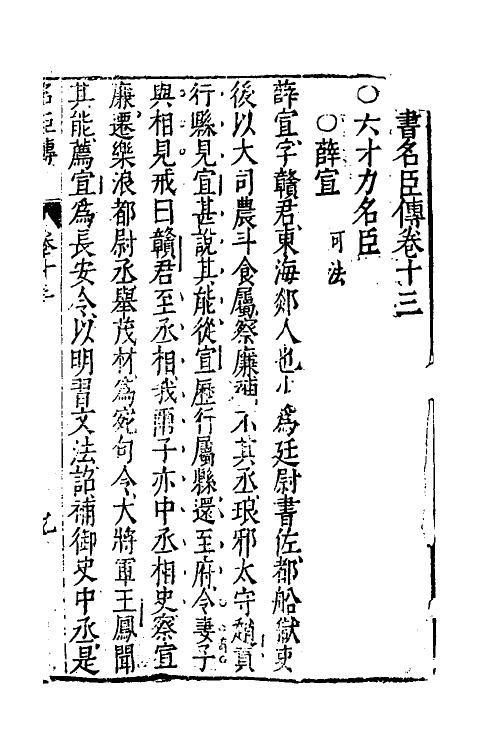 書名臣傳卷十三
○六才力名臣
○薛宣 可法
薛宣字贛君東海郯人也少爲廷尉書佐都船獄吏
後以大司農斗食屬察廉補不其丞琅邪太守趙貢
行縣見宣甚說其能從宣歷行屬縣還至府令妻子
與相見戒曰贛君至丞相我兩子亦中丞相史察宣
廉遷樂浪都尉丞舉茂材爲宛句令大將軍王鳳聞
其能薦宣爲長安令以明習文法詔補御史中丞是
名臣傳 卷十三